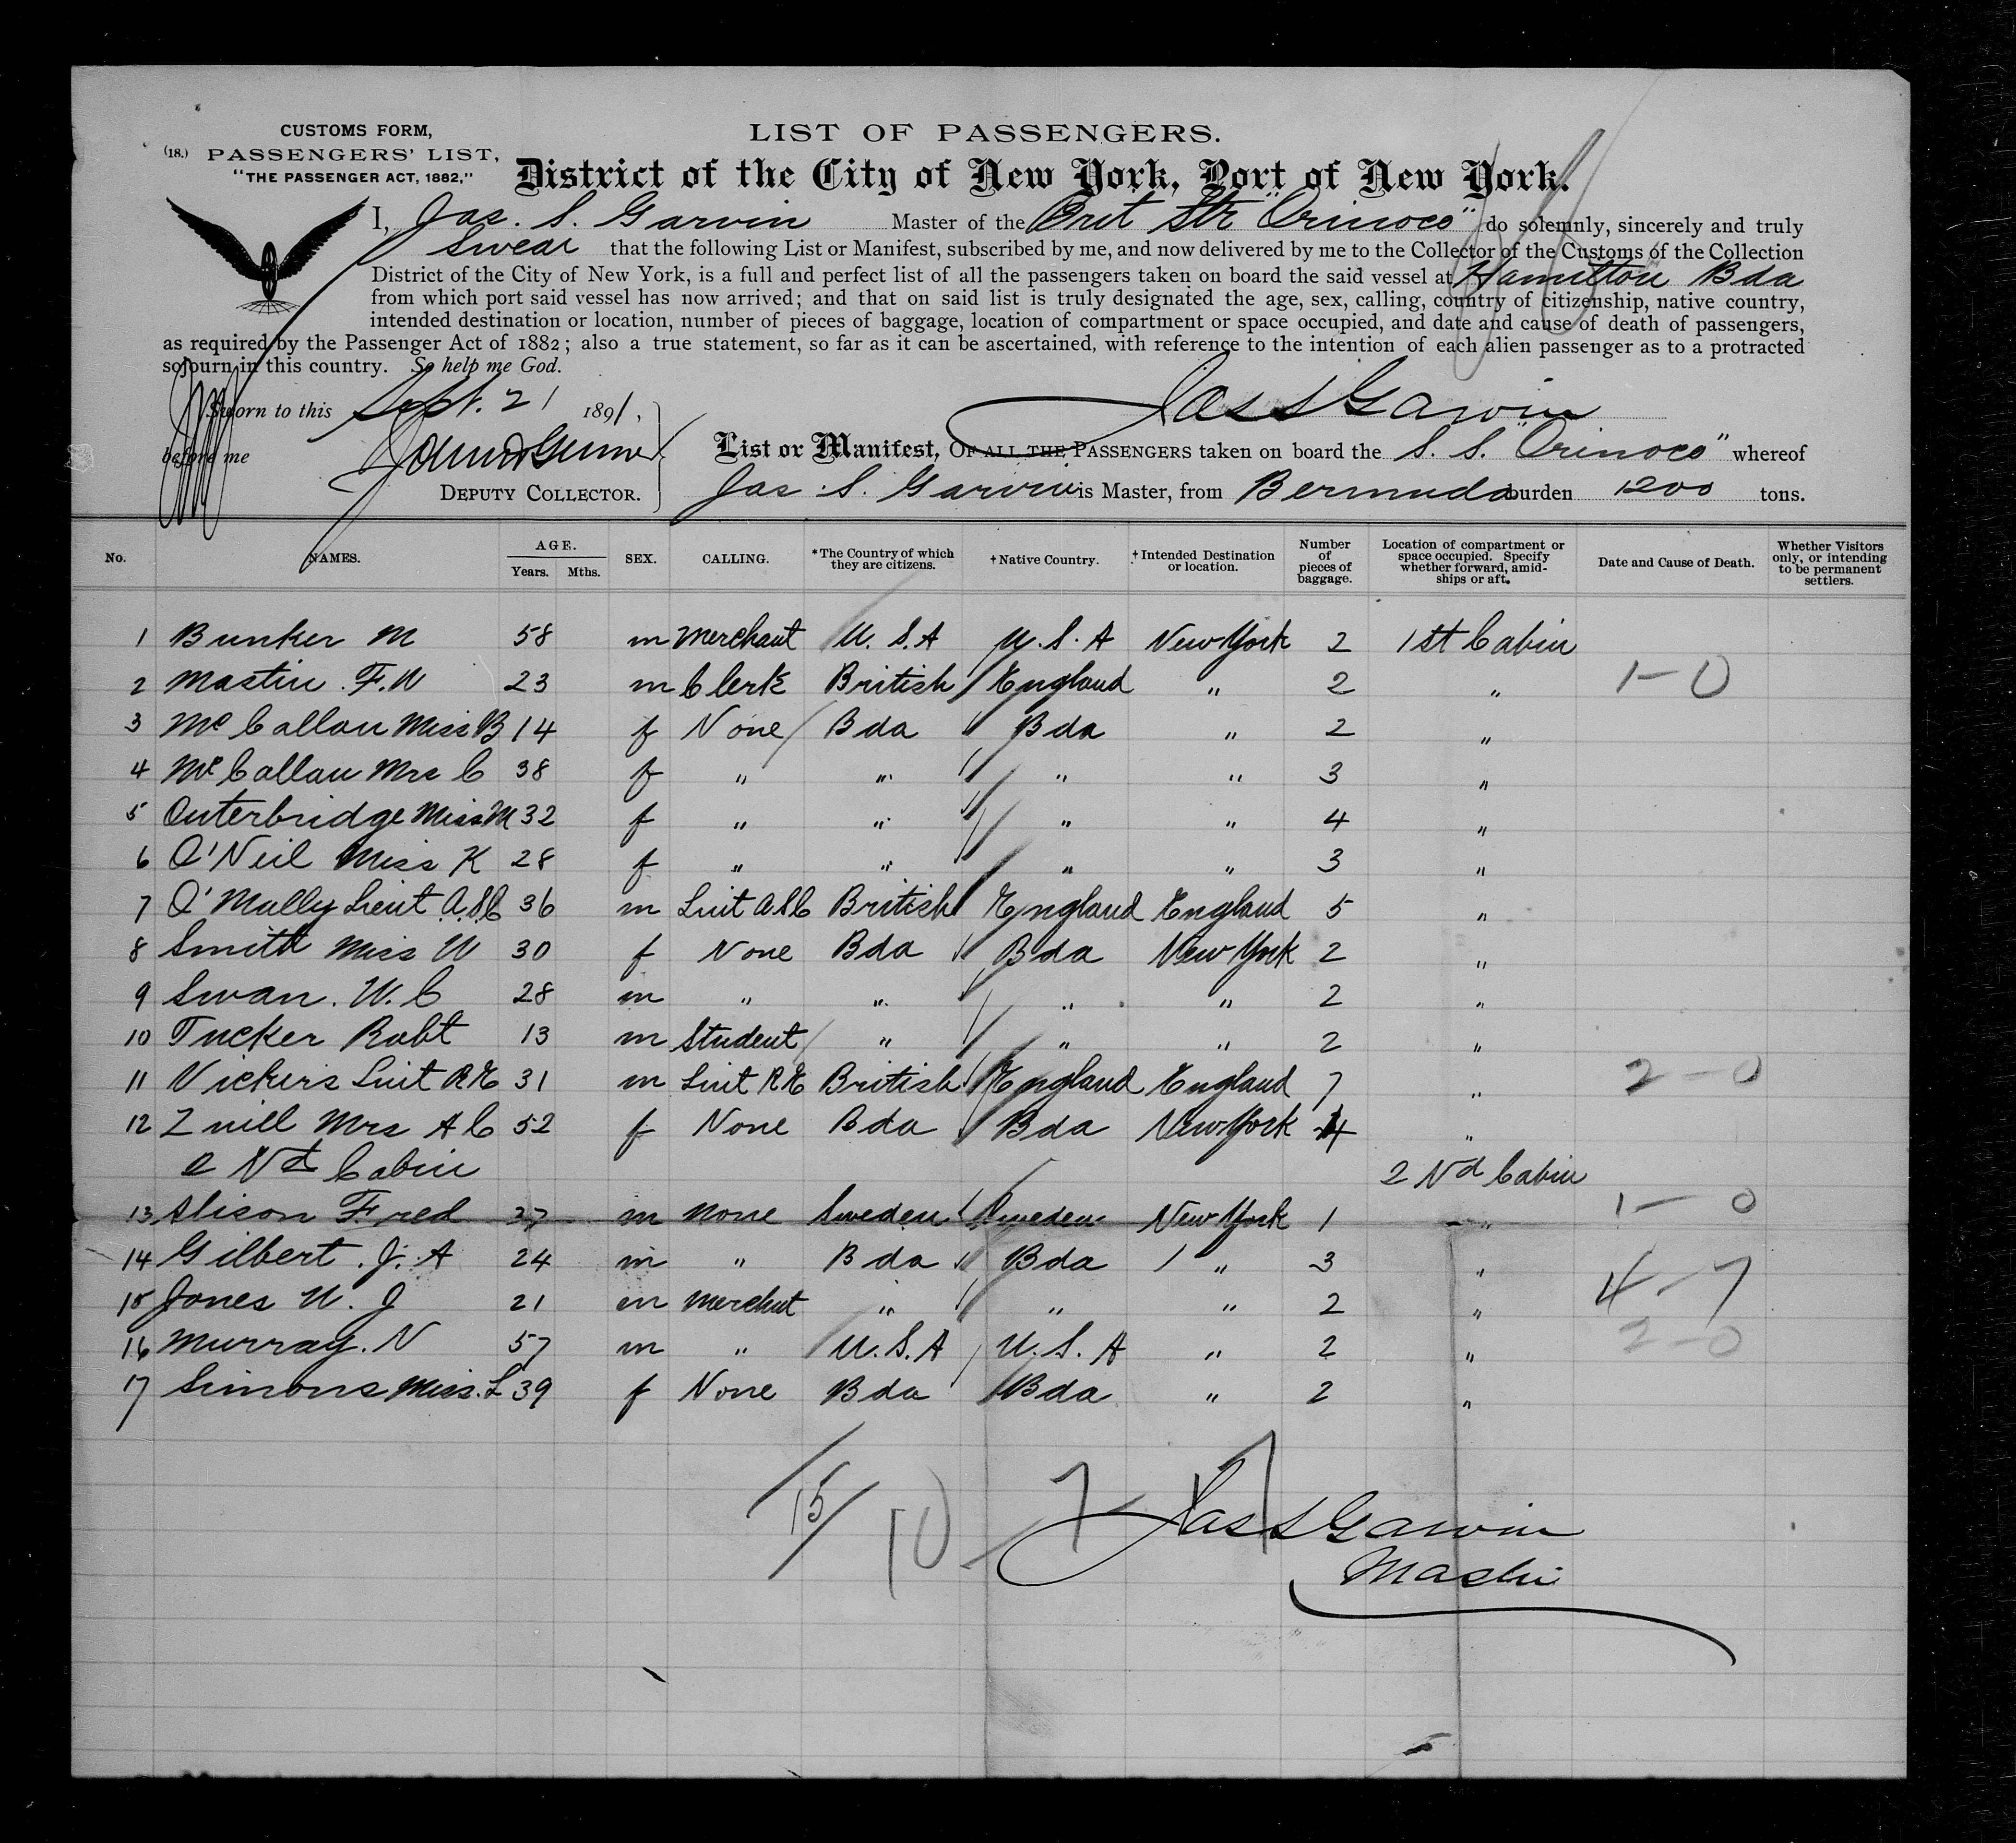 CUSTOMS FORM,
(18.) PASSENGERS' LIST,
"THE PASSENGER ACT, 1882,"
LIST OF PASSENGERS.
District of the City of New York, Port of New York.
I, Jas. S. Garvin Master of the Brit Str "Orinoco" do solemnly, sincerely and truly
Swear that the following List or Manifest, subscribed by me, and now delivered by me to the Collector of the Customs of the Collection
District of the City of New York, is a full and perfect list of all the passengers taken on board the said vessel at Hamilton Bda
from which port said vessel has now arrived; and that on said list is truly designated the age, sex, calling, country of citizenship, native country,
intended destination or location, number of pieces of baggage, location of compartment or space occupied, and date and cause of death of passengers,
as required by the Passenger Act of 1882; also a true statement, so far as it can be ascertained, with reference to the intention of each alien passenger as to a protracted
sojourn in this country. So help me God.
Sworn to this Sept. 21 1891,
Jas S Garvin
before me
DEPUTY COLLECTOR.
List or Manifest, OF ALL THE PASSENGERS taken on board the S. S. "Orinoco" whereof
Jas. S. Garvin is Master, from Bermuda burden 1200 tons.
No. NAMES. AGE. Years. Mths. SEX. CALLING. *The Country of which they are citizens. †Native Country. †Intended Destination or location. Number of pieces of baggage. Location of compartment or space occupied. Specify whether forward, amidships or aft. Date and Cause of Death. Whether Visitors only, or intending to be permanent settlers.
1 Bunker M 58 m Merchant U. S. A U. S. A New York 2 1st Cabin
2 Mastin F. W 23 m Clerk British England " 2 " 1-0
3 Mc Callan Miss B 14 f None Bda Bda " 2 "
4 Mc Callan Mrs C 38 f " " " " 3 "
5 Outerbridge Miss M 32 f " " " " 4 "
6 O'Neil Miss K 28 f " " " " 3 "
7 O'Mally Lieut. A.S.C 36 m Luit A.S.C British England England 5 "
8 Smith Miss W 30 f None Bda Bda New York 2 "
9 Swan. W. C 28 m " " " " 2 "
10 Tucker Robt 13 m Student " " " 2 "
11 Vickers Luit R E 31 m Luit R E British England England 7 " 2-0
12 Zuill Mrs A C 52 f None Bda Bda New York 4 "
2 Nd Cabin 2 Nd Cabin
13 Alison Fred 37 m None Sweden Sweden New York 1 " 1-0
14 Gilbert. J. A 24 m " Bda Bda 1 " 3 "
15 Jones W. J 21 m Merchut " " " 2 " 4-7
16 Murray. N 57 m " U. S. A U. S. A " 2 " 2-0
17 Simons Miss. L 39 f None Bda Bda " 2 "
15 10-7
Jas S Garvin
Master